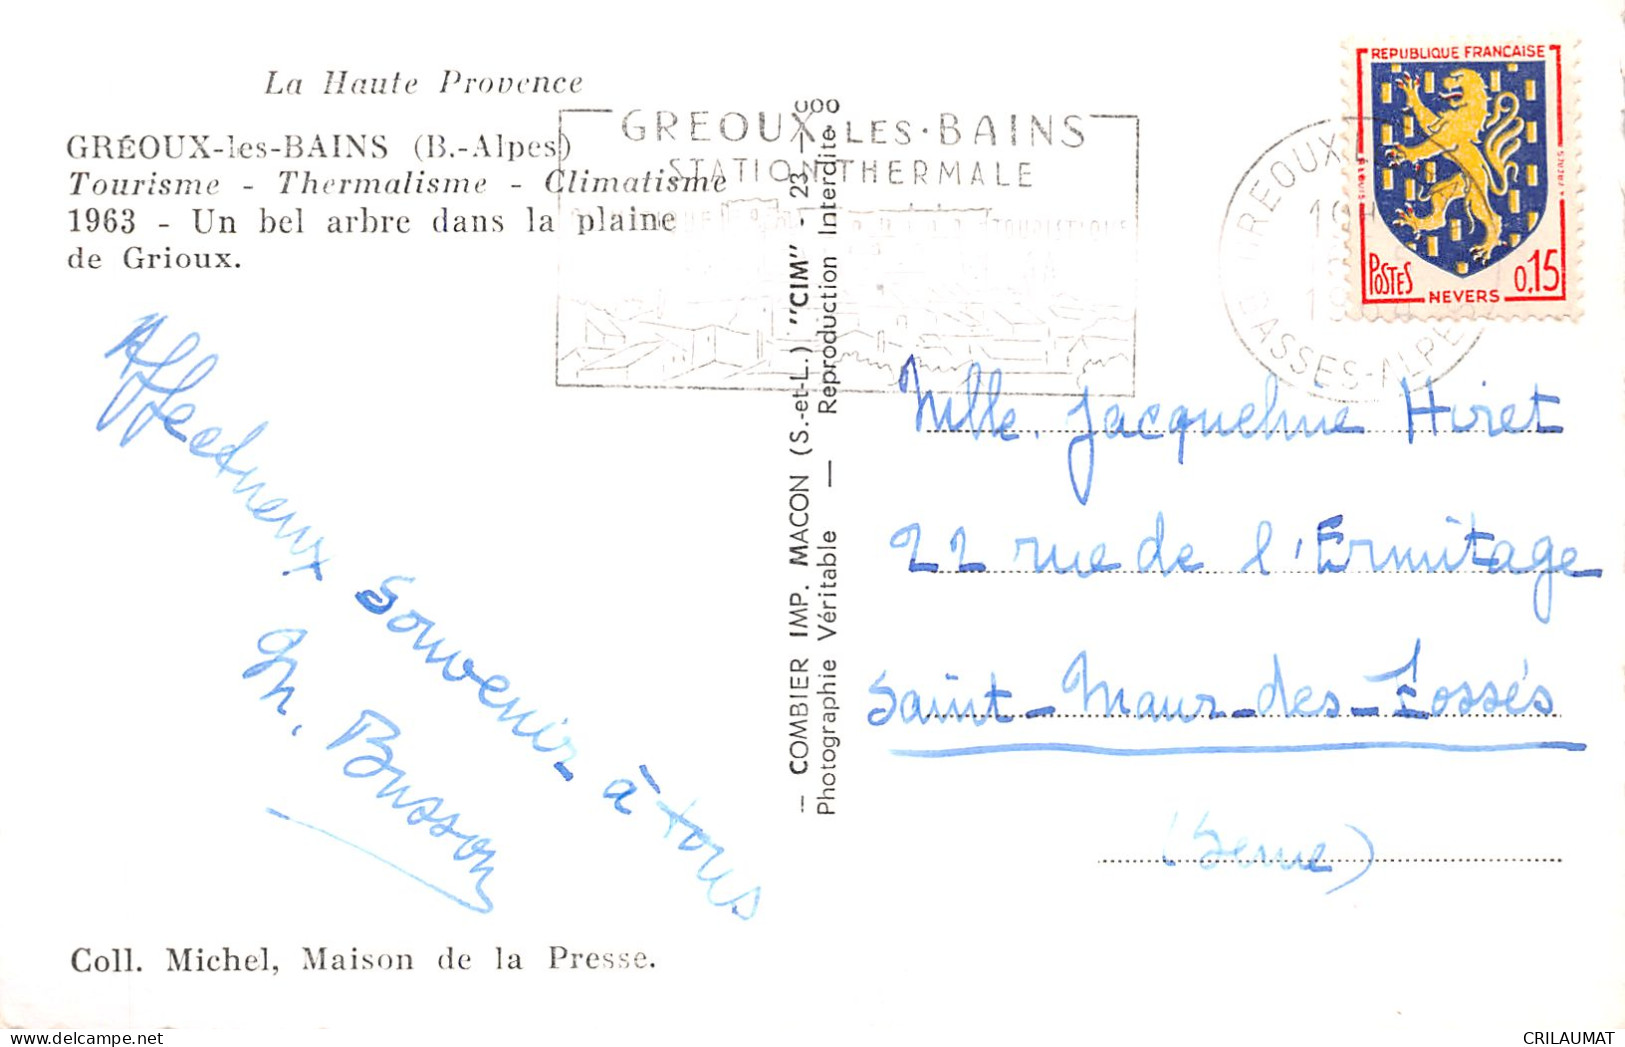 La Haute Provence
GRÉOUX-les-BAINS (B.-Alpes)
Tourisme - Thermalisme - Climatisme
1963 - Un bel arbre dans la plaine
de Grioux.
Affectueux souvenir à tous
M. Busson
Coll. Michel, Maison de la Presse.
— COMBIER IMP. MACON (S.-et-L.) "CIM" - 23
Photographie Véritable — Reproduction Interdite
GREOUX·LES·BAINS
STATION THERMALE
TOURISTIQUE
GREOUX
BASSES-ALPES
REPUBLIQUE FRANÇAISE
POSTES
0,15
NEVERS
Mlle. Jacqueline Hiret
22 rue de l'Ermitage
Saint-Maur-des-Fossés
(Seine)
CRILAUMAT